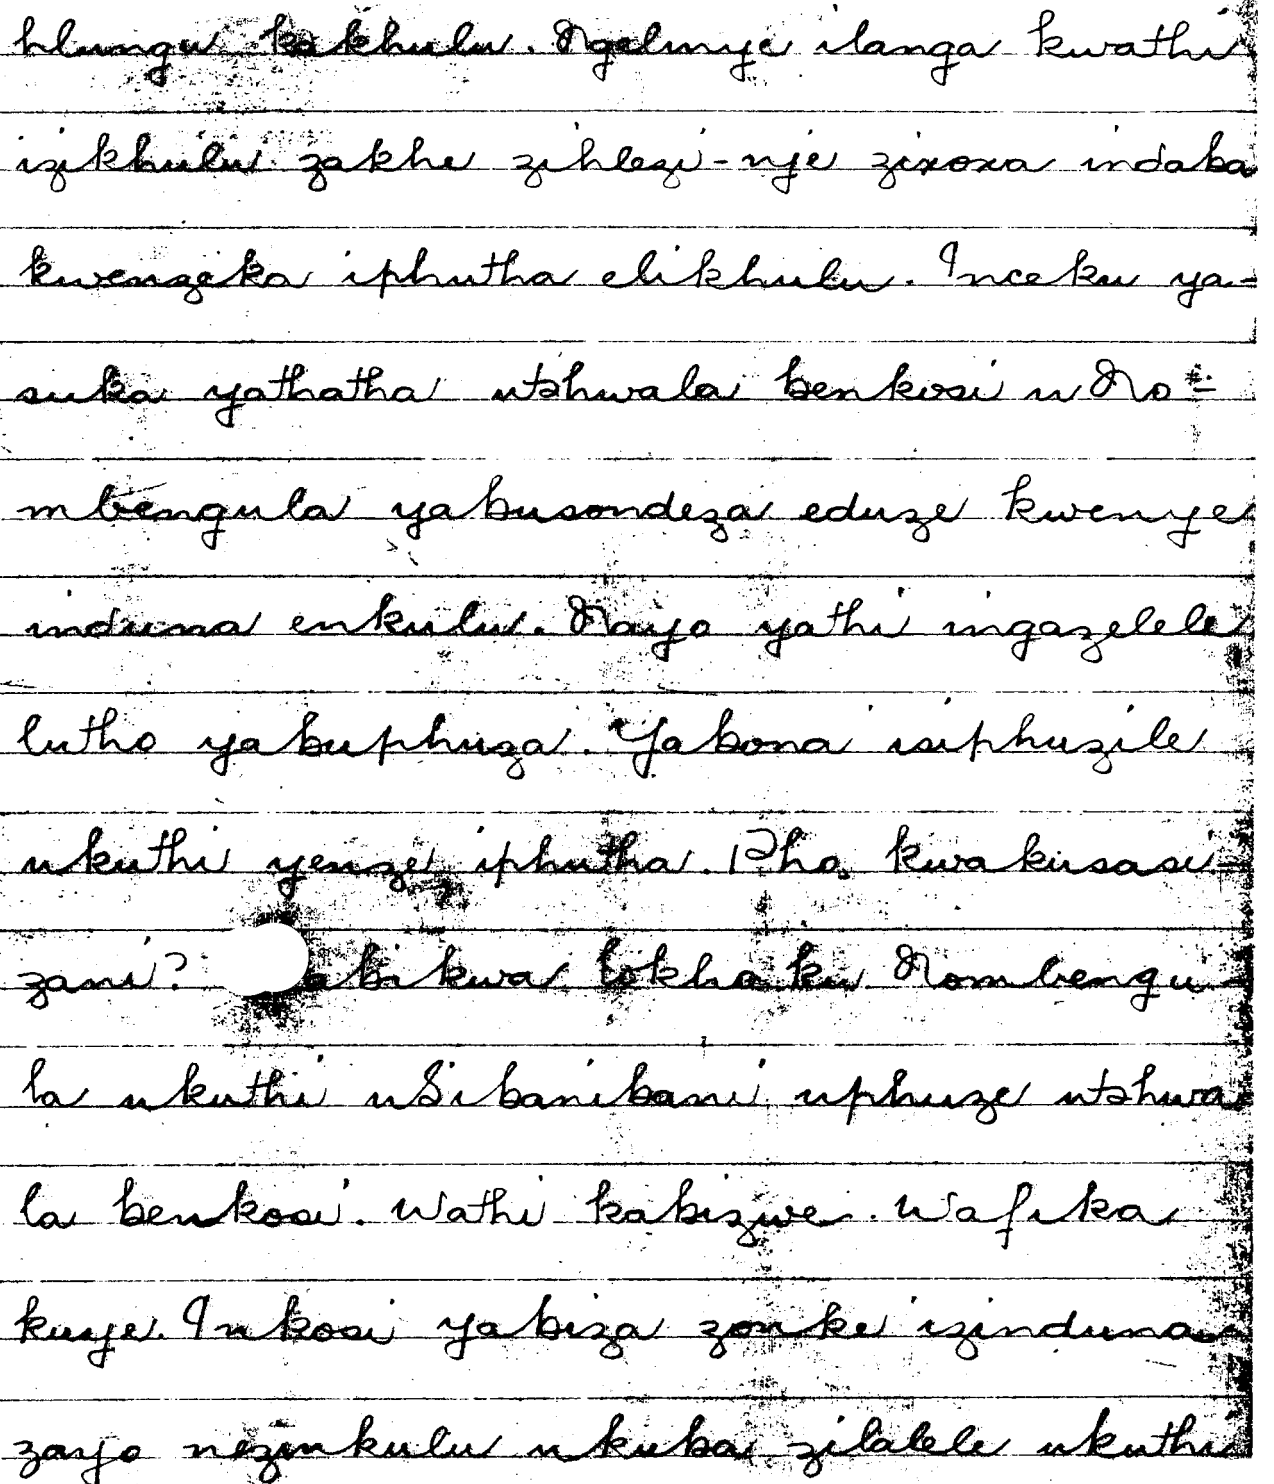 hlungu kakhulu. Ngelinye ilanga kwathi
izikhulu zakhe zihlezi-nje zixoxa indaba
kwenzeka iphutha elikhulu. Inceku ya-
suka yathatha utshwala benkosi u No-
mbengula yabusondeza eduze kwenye
induna enkulu. Nayo yathi ingazelele
lutho yabuphuza. Yabona isiphuzile
ukuthi yenze iphutha. Pho, kwakusase-
zani? abikwa lokho ku Nombengu-
la ukuthi uSibanibani uphuze utshwa-
la benkosi. Wathi kabizwe. Wafika
kuye. Inkosi yabiza zonke izinduna
zayo nezinkulu ukuba zilalele ukuthi